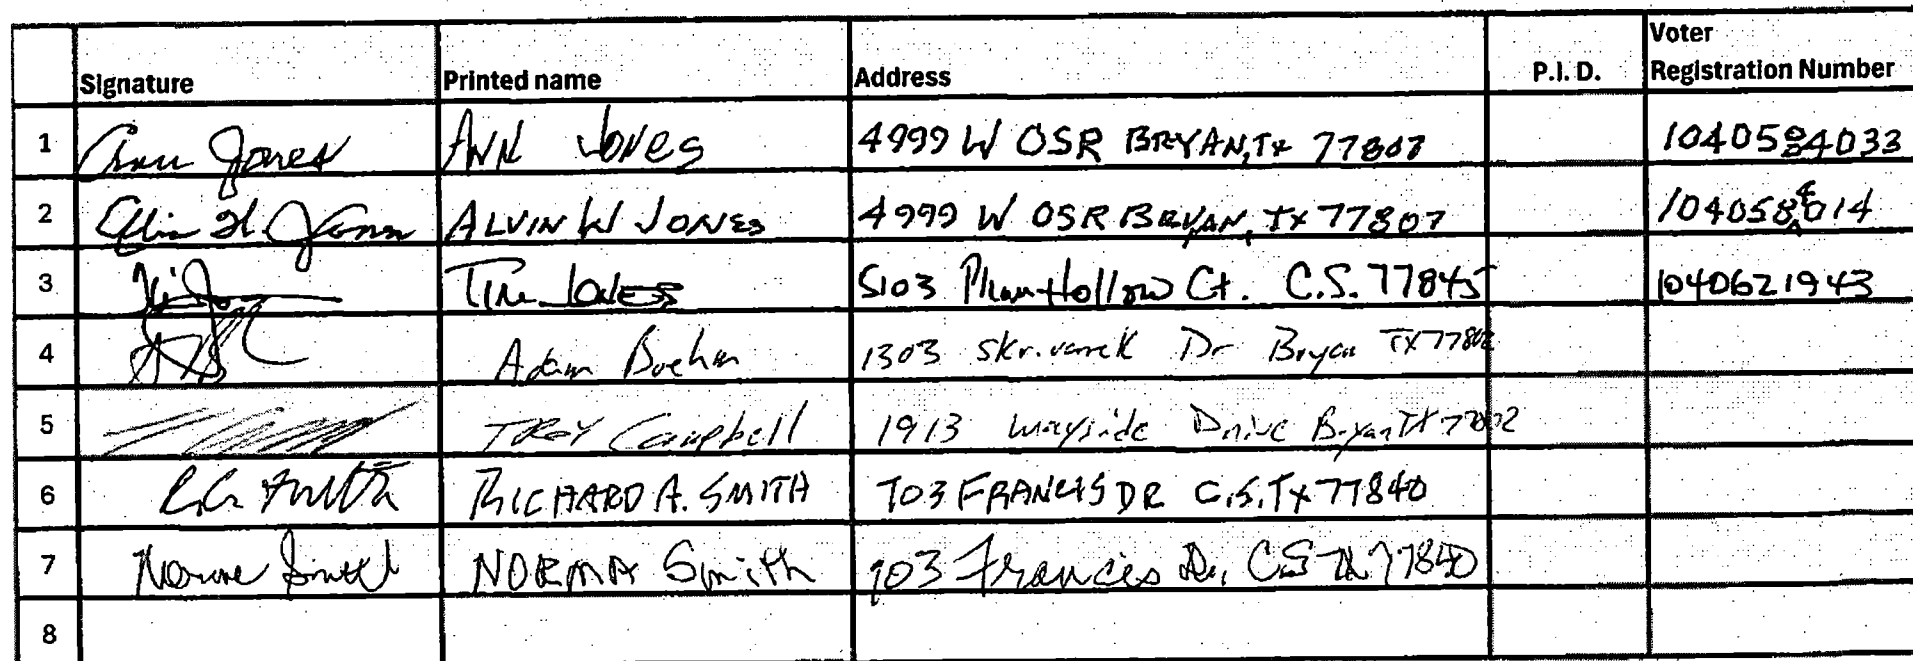 Voter
Signature Printed name Address P.I.D. Registration Number
1 Ann Jones ANN JONES 4999 W OSR BRYAN, TX 77807 1040584033
2 ALVIN W JONES 4999 W OSR BRYAN, TX 77807
3 Tim Jones 5103 Plum Hollow Ct. C.S. 77845 1040621943
4 Adam Boehm 1303 Skrivanek Dr Bryan TX 77802
5 TROY Campbell 1913 Wayside Drive Bryan TX 77802
6 RICHARD A. SMITH 703 FRANCIS DR C.S. TX 77840
7 Norma Smith NORMA Smith 703 Francis Dr. CS TX 77840
8